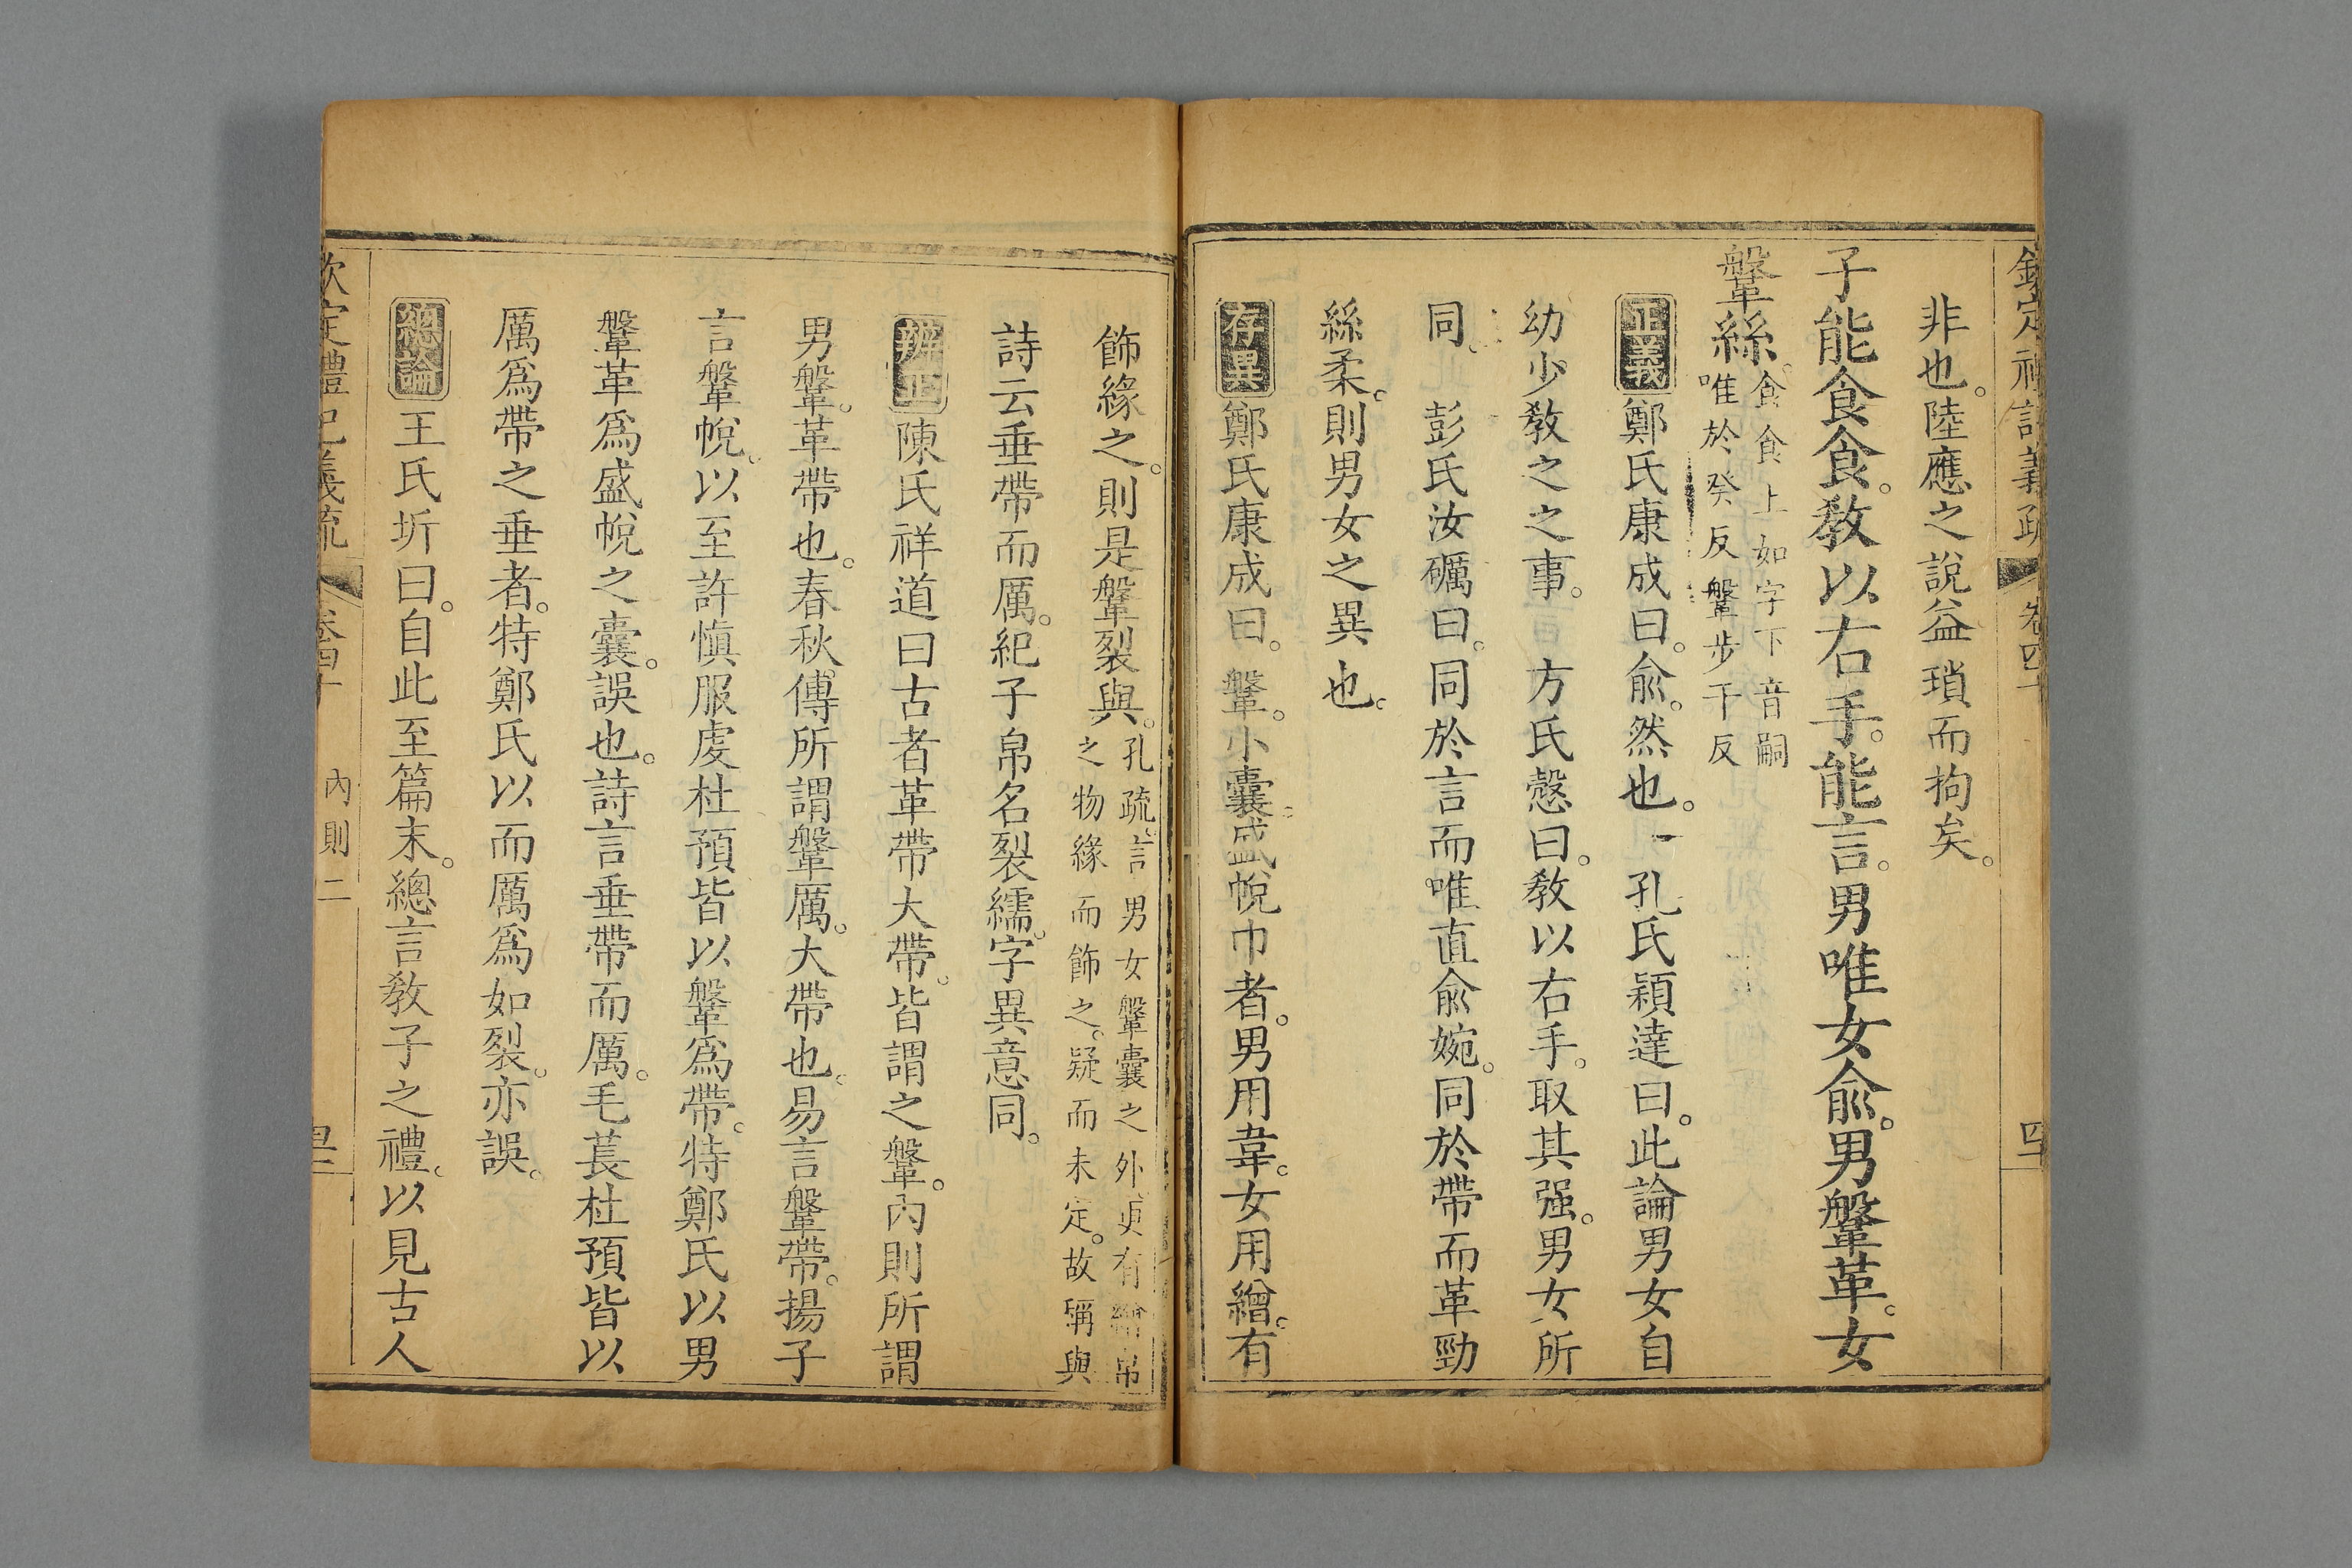 欽定禮記義疏 卷四十 四十
非也。陸應之說益瑣而拘矣。
子能食食。敎以右手。能言。男唯女俞。男鞶革。女
鞶絲。食食上如字下音嗣
唯於癸反鞶步干反
正義 鄭氏康成曰。俞。然也。 孔氏穎達曰。此論男女自
幼少敎之之事。 方氏慤曰。敎以右手。取其强。男女所
同。 彭氏汝礪曰。同於言而唯直俞婉。同於帶而革勁
絲柔。則男女之異也。
存異 鄭氏康成曰。鞶。小囊盛帨巾者。男用韋。女用繒。有
飾緣之。則是鞶裂與。孔疏言男女鞶囊之外更有繒帛
之物緣而飾之。疑而未定。故稱與
詩云垂帶而厲。紀子帛名裂繻。字異意同。
辨正 陳氏祥道曰古者革帶大帶。皆謂之鞶。內則所謂
男鞶。革帶也。春秋傳所謂鞶厲。大帶也。易言鞶帶。揚子
言鞶帨。以至許愼服虔杜預皆以鞶爲帶。特鄭氏以男
鞶革爲盛帨之囊。誤也。詩言垂帶而厲。毛萇杜預皆以
厲爲帶之垂者。特鄭氏以而厲爲如裂。亦誤。
總論 王氏圻曰。自此至篇末。總言敎子之禮。以見古人
欽定禮記義疏 卷四十 內則二